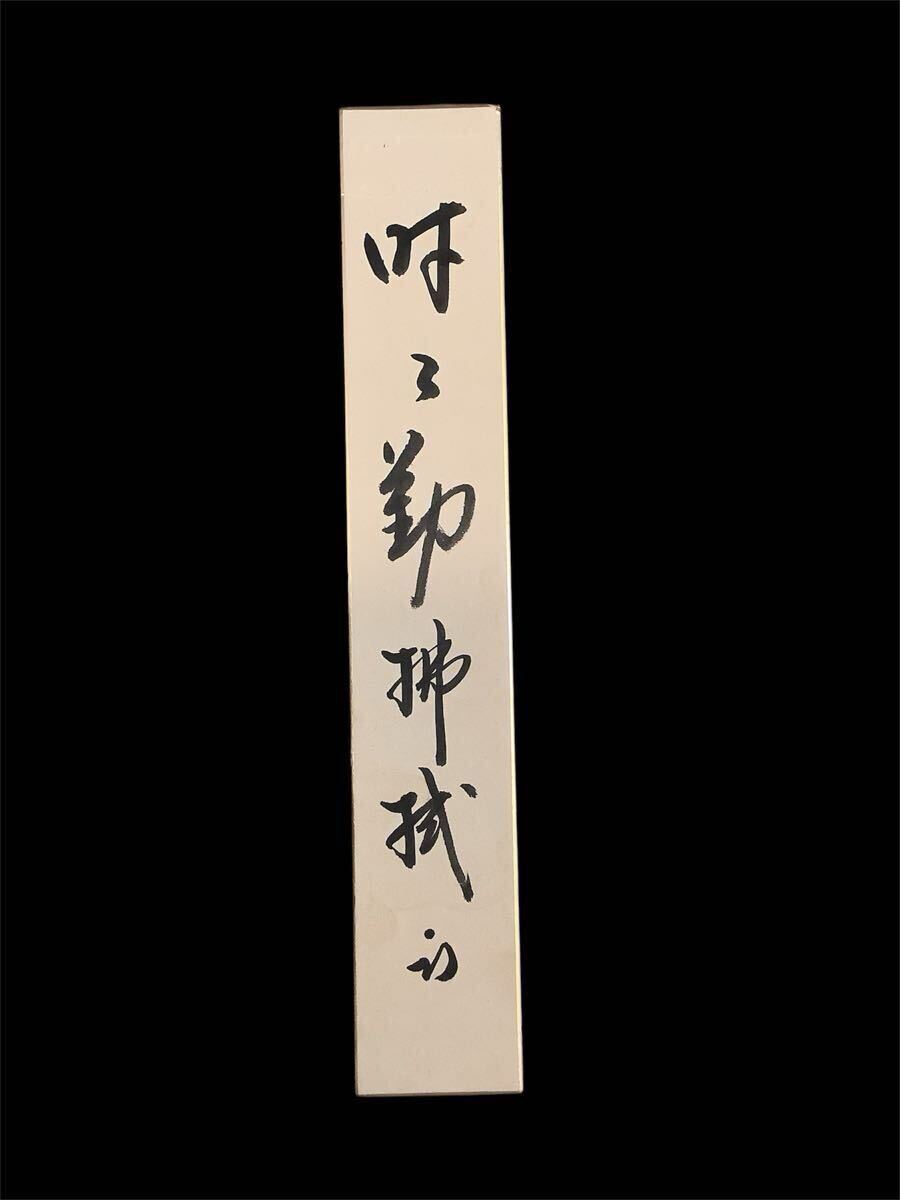 時々勤拂拭